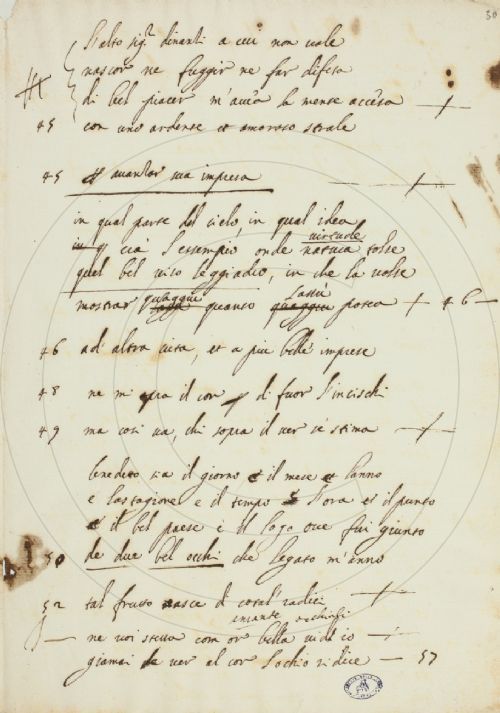 30
L'alto sig.r dinanti a cui non vale
nasconder ne fuggir ne far difesa
di bel piacer m'avea la mente accesa
45 con uno ardente et amoroso strale
45 et avanzar sua impresa
in qual parte del cielo, in qual idea
era l'essempio, onde natura tolse
virtude
quel bel viso leggiadro, in che la volse
mostrar quaggiù quanto lassù potea 46
46 ad' altra vita, et a più belle imprese
48 ne mi qua il cor di fuor l'incischi
49 ma così va, chi sopra il ver si stima
benedeto sia il giorno e il mese e l'anno
e la stagione e il tempo e l'ora et il punto
e il bel paese e il loco ove fui giunto
50 da due bel occhi che legato m'anno
52 tal frutto nasce di cotal radici
amante
ne voi stessa com or bella vidd io
giamai de ver al cor l'ochio ridice 57